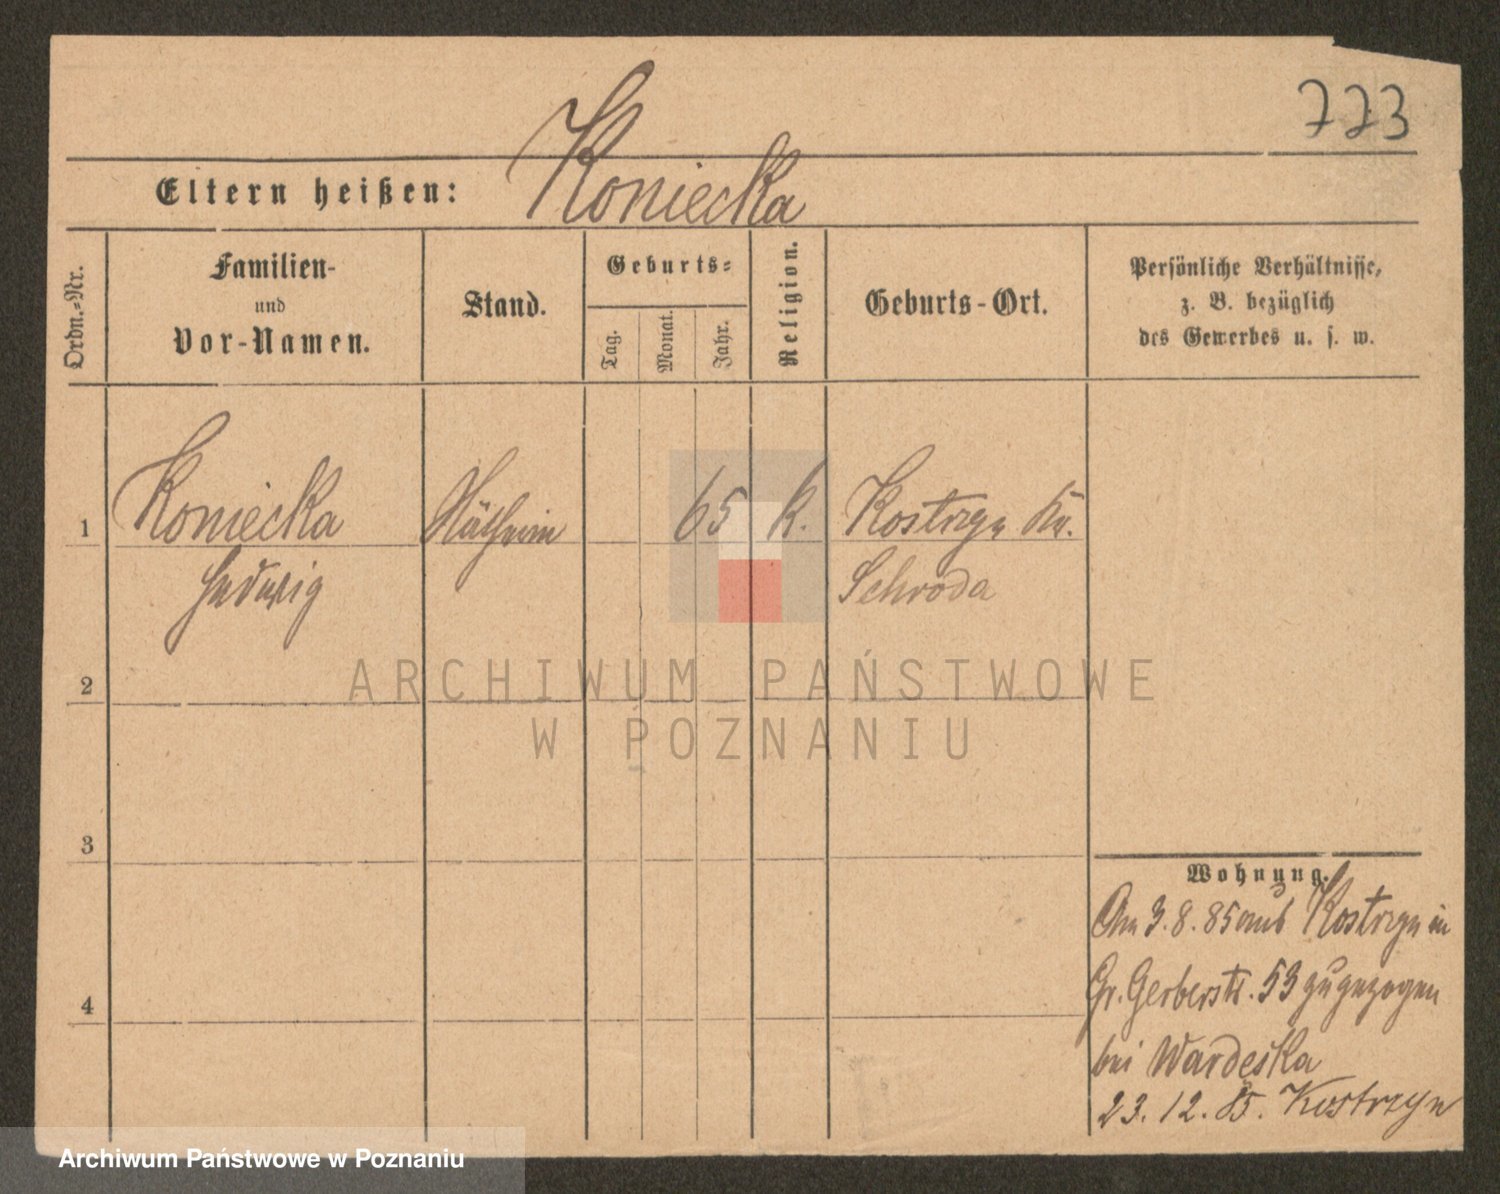 773
Eltern heißen: Koniecka
Ordn.-Nr.
Familien-
und
Vor-Namen.
Stand.
Geburts-
Tag.
Monat.
Jahr.
Religion.
Geburts-Ort.
Persönliche Verhältnisse,
z. B. bezüglich
des Gewerbes u. s. w.
1 Koniecka Nätherin 65 k. Kostrzyn Kr.
Hedwig Schroda
2
ARCHIWUM PAŃSTWOWE
W POZNANIU
3
Wohnung.
Am 3. 8. 85 aus Kostrzyn in
Gr. Gerberstr. 53 zugezogen
bei Wardeska
4
23. 12. 85. Kostrzyn
Archiwum Państwowe w Poznaniu